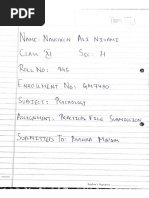 NAME: NAVIN ALI NIZAMI
CLASS: XI SEC: H
ROLL NO: 946
ENROLLMENT NO: GM7490
SUBJECT: PSYCHOLOGY
ASSIGNMENT: PRACTICAL FILE SUBMISSION
SUBMITTED TO: MA'AM